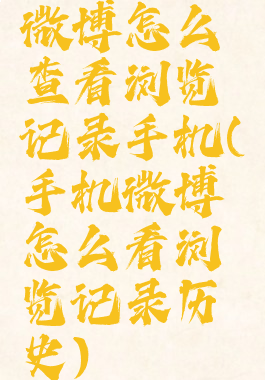 微博怎么
查看浏览
记录手机(
手机微博
怎么看浏
览记录历
史)